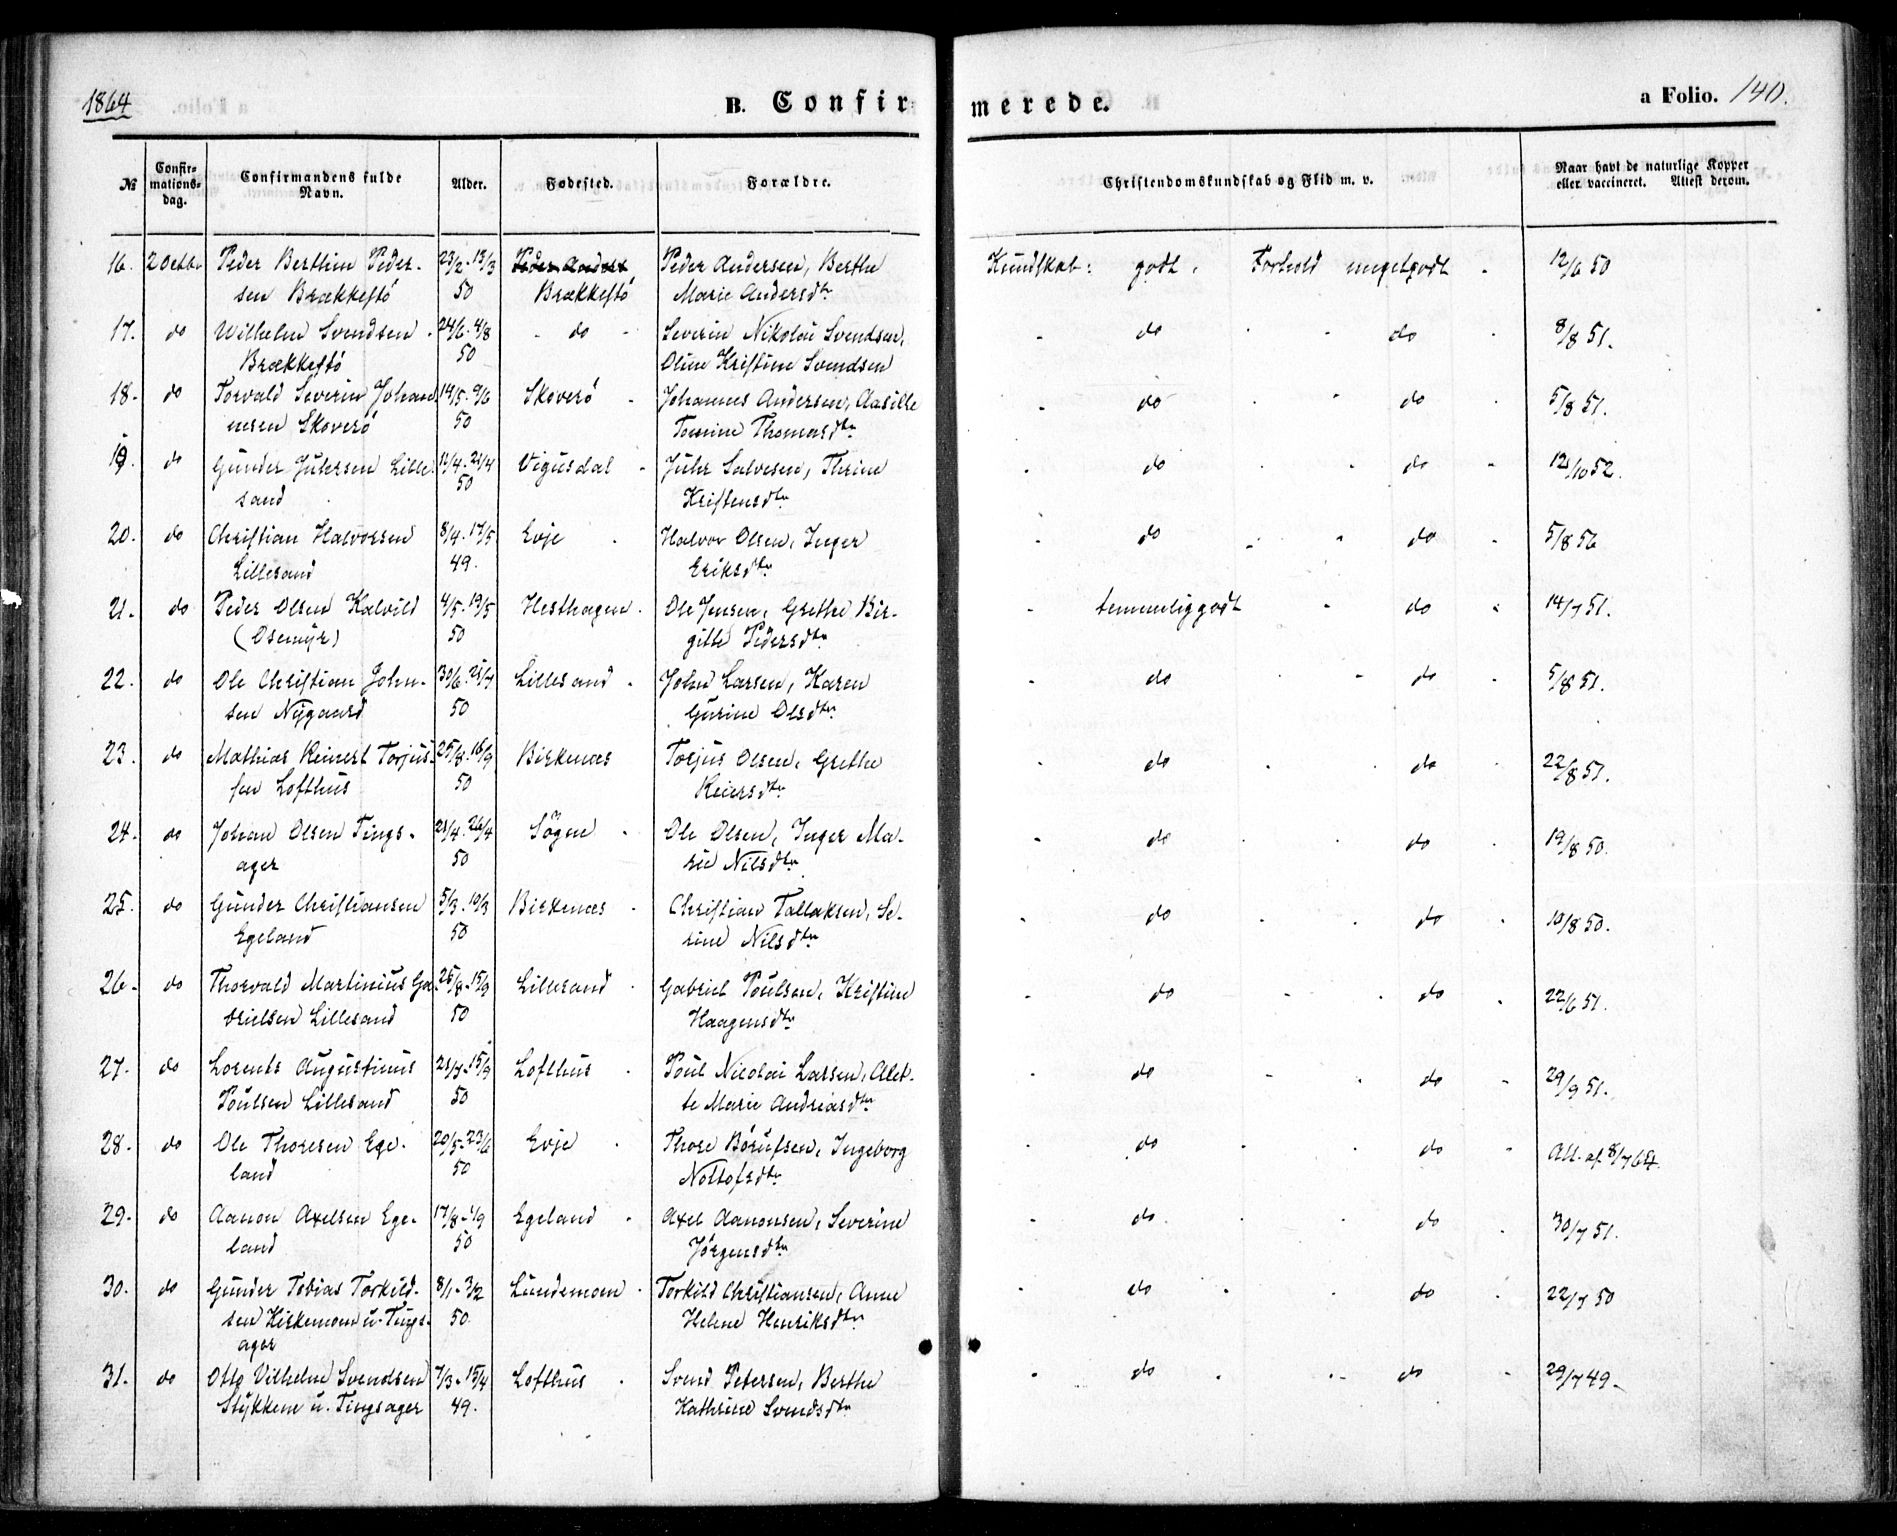 1864
B. Confirmerede.
a Folio. 140.
№ Confirmationsdag. Confirmandens fulde Navn. Alder. Fødested. Forældre. Christendomskundskab og Flid m. v. Naar havt de naturlige Kopper eller vaccineret. Attest derom.
16. 2 Octbr Peder Berthin Peder- 23/2. 13/3 Peder Anders Peder Andersen, Berthe Kundskab: godt. Forhold megetgodt 12/6 50
sen Brækkestö 50 Brækkestö Marie Andersdtr
17. do Wilhelm Svendsen 24/6. 4/8 do Severin Nikolai Svendsen, do do 8/8 51.
Brækkestö 50 Oline Kristine Svendsen
18. do Torvald Severin Johan 14/5. 9/6 Skoverö Johannes Andersen, Aasille do do 5/8 51.
nesen Skoverö 50 Tomine Thomasdtr
19. do Gunder Juhrsen Lille 12/4. 21/4 Vigusdal Juhr Salvesen, Thrine do do 12/10 52.
sand 50 Kristensdtr
20. do Christian Halvorsen 8/4. 17/5 Evje Halvor Olsen, Inger do do 5/8 56
Lillesand 49. Eriksdtr
21. do Peder Olsen Kalvild 4/5. 19/5 Hesthagen Ole Jensen, Grethe Bir- temmeliggodt do 14/7 51.
(Osemyr) 50 gitte Pedersdtr
22. do Ole Christian John- 30/6. 21/7 Lillesand John Larsen, Karen do do 5/8 51.
sen Nygaard 50 Gurine Olsdtr
23. do Mathias Reinert Torjus- 25/8. 15/9 Birkenæs Torjus Olsen, Grethe do do 22/8 51.
sen Lofthus 50 Reiersdtr
24. do Johan Olsen Tings- 21/4. 26/4 Sögne Ole Olsen, Inger Ma- do do 19/8 50.
ager 50 rie Nilsdtr
25. do Gunder Christiansen 5/3. 10/3 Birkenæs Christian Tallaksen, Se- do do 10/8 50.
Egeland 50 rine Nilsdtr
26. do Thorvald Martinius Ga- 25/8. 15/9 Lillesand Gabriel Poulsen, Kristine do do 22/6 51.
brielsen Lillesand 50 Haagensdtr
27. do Lorents Augustinus 21/7. 15/9 Lofthus Poul Nicolai Larsen, Alet- do do 29/9 51.
Poulsen Lillesand 50 te Marie Andreasdtr
28. do Ole Thoresen Ege- 20/5. 23/6 Evje Thore Börufsen, Ingeborg do do Att. af 8/7 64.
land 50 Nottofsdtr
29. do Aanon Axelsen Ege- 17/8. 1/9 Egeland Axel Aanonsen, Severine do do 30/7 51.
land 50 Jörgensdtr
30. do Gunder Tobias Torkild- 8/1. 3/2 Lundemoen Torkild Christiansen, Anne do do 22/7 50
sen Kirkemoen u. Tings- 50. Helene Henriksdtr
ager
31. do Otto Vilhelm Svendsen 7/3. 15/4 Lofthus Svend Petersen, Berthe do do 29/7 49.
Stykkene u. Tingsager 49. Kathrine Svendsdtr